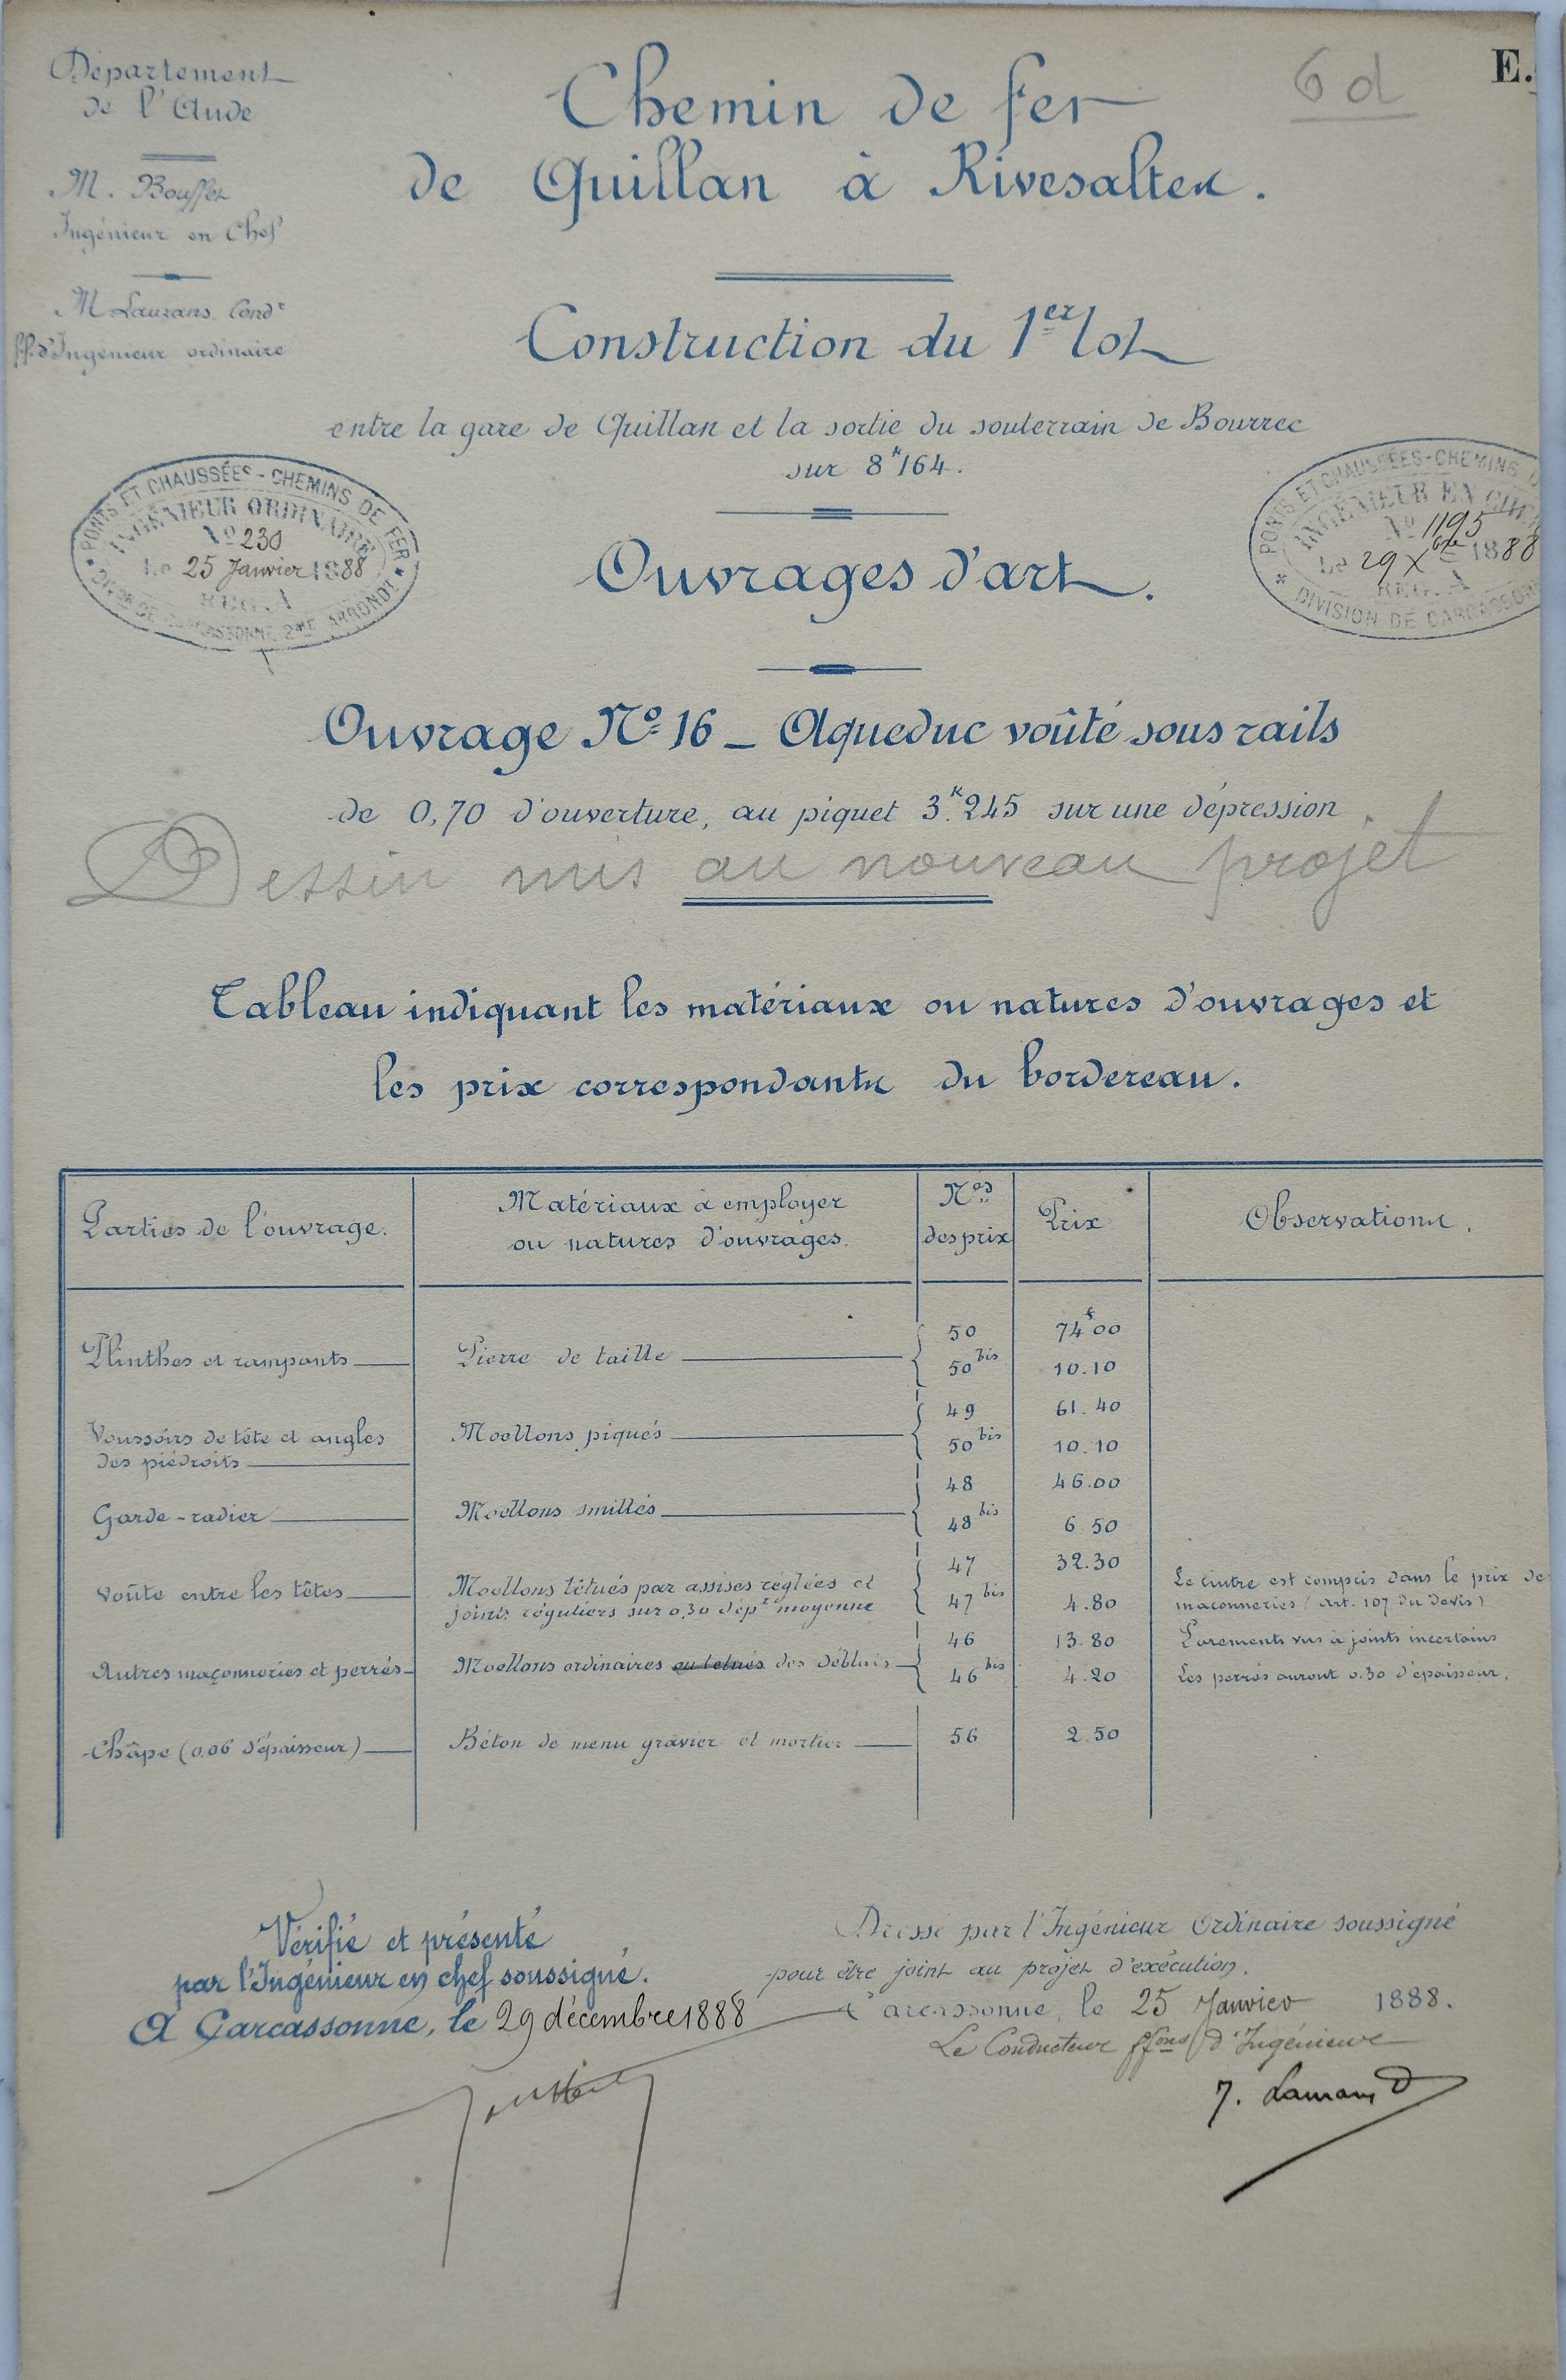 Département
de l'Aude
M. Bouffet
Ingénieur en Chef
M Lauzans. Condr
ff. d'Ingénieur ordinaire
6d
E.
Chemin de fer
de Quillan à Rivesaltes.
Construction du 1er lot
entre la gare de Quillan et la sortie du souterrain de Bourrec
sur 8k164.
PONTS ET CHAUSSÉES - CHEMINS DE FER
INGÉNIEUR ORDINAIRE
No 230
Le 25 Janvier 1888
REG. A
DIVon DE CARCASSONNE 2ME ARRONDT
PONTS ET CHAUSSÉES - CHEMINS D
INGÉNIEUR EN CHEF
No 1195
Le 29 Xbre 1888
REG. A
DIVISION DE CARCASSONNE
Ouvrages d'art.
Ouvrage No 16 - Aqueduc voûté sous rails
de 0,70 d'ouverture, au piquet 3k.245 sur une dépression.
Dessin mis au nouveau projet
Tableau indiquant les matériaux ou natures d'ouvrages et
les prix correspondants du bordereau.
Parties de l'ouvrage.
Matériaux à employer
ou natures d'ouvrages.
Nos
des prix
Prix
Observations.
Plinthes et rampants
Pierre de taille
50
74f00
50bis
10.10
Voussoirs de tête et angles
des piédroits
Moellons piqués
49
61.40
50bis
10.10
Garde-radier
Moellons smillés
48
46.00
48bis
6 50
Voûte entre les têtes
Moellons têtués par assises réglées et
joints réguliers sur 0.30 d'épr moyenne
47
32.30
47bis
4.80
Le cintre est compris dans le prix de
maçonneries (art. 107 du devis)
Autres maçonneries et perrés
Moellons ordinaires ou têtués des déblais
46
13.80
46bis
4.20
Parements vus à joints incertains
Les perrés auront 0.30 d'épaisseur.
Châpe (0,06 d'épaisseur)
Béton de menu gravier et mortier
56
2.50
Vérifié et présenté
par l'Ingénieur en chef soussigné.
A Carcassonne, le 29 décembre 1888
Dressé par l'Ingénieur Ordinaire soussigné
pour être joint au projet d'exécution.
Carcassonne, le 25 Janvier 1888.
Le Conducteur ffons d'Ingénieur